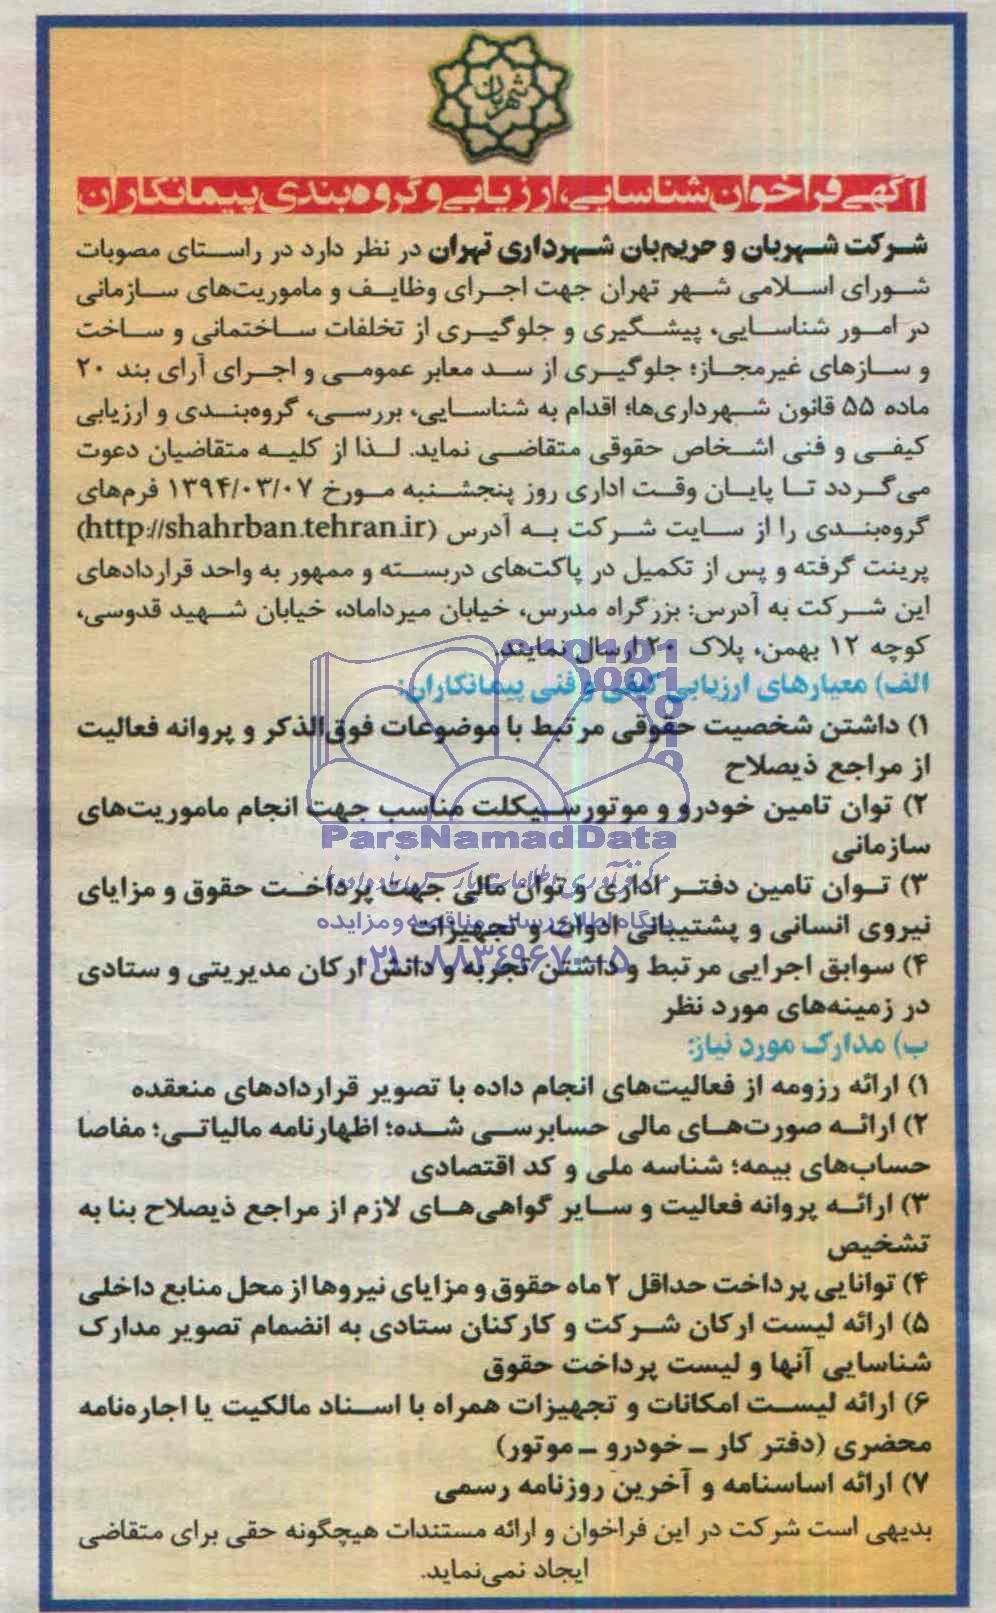 شهربان
آگهی فراخوان شناسایی، ارزیابی و گروه‌بندی پیمانکاران
شرکت شهربان و حریم‌بان شهرداری تهران در نظر دارد در راستای مصوبات
شورای اسلامی شهر تهران جهت اجرای وظایف و ماموریت‌های سازمانی
در امور شناسایی، پیشگیری و جلوگیری از تخلفات ساختمانی و ساخت
و سازهای غیرمجاز؛ جلوگیری از سد معابر عمومی و اجرای آرای بند ۲۰
ماده ۵۵ قانون شهرداری‌ها؛ اقدام به شناسایی، بررسی، گروه‌بندی و ارزیابی
کیفی و فنی اشخاص حقوقی متقاضی نماید. لذا از کلیه متقاضیان دعوت
می‌گردد تا پایان وقت اداری روز پنجشنبه مورخ ۱۳۹۴/۰۳/۰۷ فرم‌های
گروه‌بندی را از سایت شرکت به آدرس (http://shahrban.tehran.ir)
پرینت گرفته و پس از تکمیل در پاکت‌های دربسته و ممهور به واحد قراردادهای
این شرکت به آدرس: بزرگراه مدرس، خیابان میرداماد، خیابان شهید قدوسی،
کوچه ۱۲ بهمن، پلاک ۲۰ ارسال نمایند.
الف) معیارهای ارزیابی کیفی و فنی پیمانکاران:
۱) داشتن شخصیت حقوقی مرتبط با موضوعات فوق‌الذکر و پروانه فعالیت
از مراجع ذیصلاح
۲) توان تامین خودرو و موتورسیکلت مناسب جهت انجام ماموریت‌های
سازمانی
ParsNamadData
۳) توان تامین دفتر اداری و توان مالی جهت پرداخت حقوق و مزایای
نیروی انسانی و پشتیبانی ادوات و تجهیزات
پایگاه اطلاع رسانی مناقصه و مزایده
۰۲۱-۸۸۳۴۹۶۷۰-۵
۴) سوابق اجرایی مرتبط و داشتن تجربه و دانش ارکان مدیریتی و ستادی
در زمینه‌های مورد نظر
ب) مدارک مورد نیاز:
۱) ارائه رزومه از فعالیت‌های انجام داده با تصویر قراردادهای منعقده
۲) ارائه صورت‌های مالی حسابرسی شده؛ اظهارنامه مالیاتی؛ مفاصا
حساب‌های بیمه؛ شناسه ملی و کد اقتصادی
۳) ارائه پروانه فعالیت و سایر گواهی‌های لازم از مراجع ذیصلاح بنا به
تشخیص
۴) توانایی پرداخت حداقل ۲ ماه حقوق و مزایای نیروها از محل منابع داخلی
۵) ارائه لیست ارکان شرکت و کارکنان ستادی به انضمام تصویر مدارک
شناسایی آنها و لیست پرداخت حقوق
۶) ارائه لیست امکانات و تجهیزات همراه با اسناد مالکیت یا اجاره‌نامه
محضری (دفتر کار ـ خودرو ـ موتور)
۷) ارائه اساسنامه و آخرین روزنامه رسمی
بدیهی است شرکت در این فراخوان و ارائه مستندات هیچگونه حقی برای متقاضی
ایجاد نمی‌نماید.